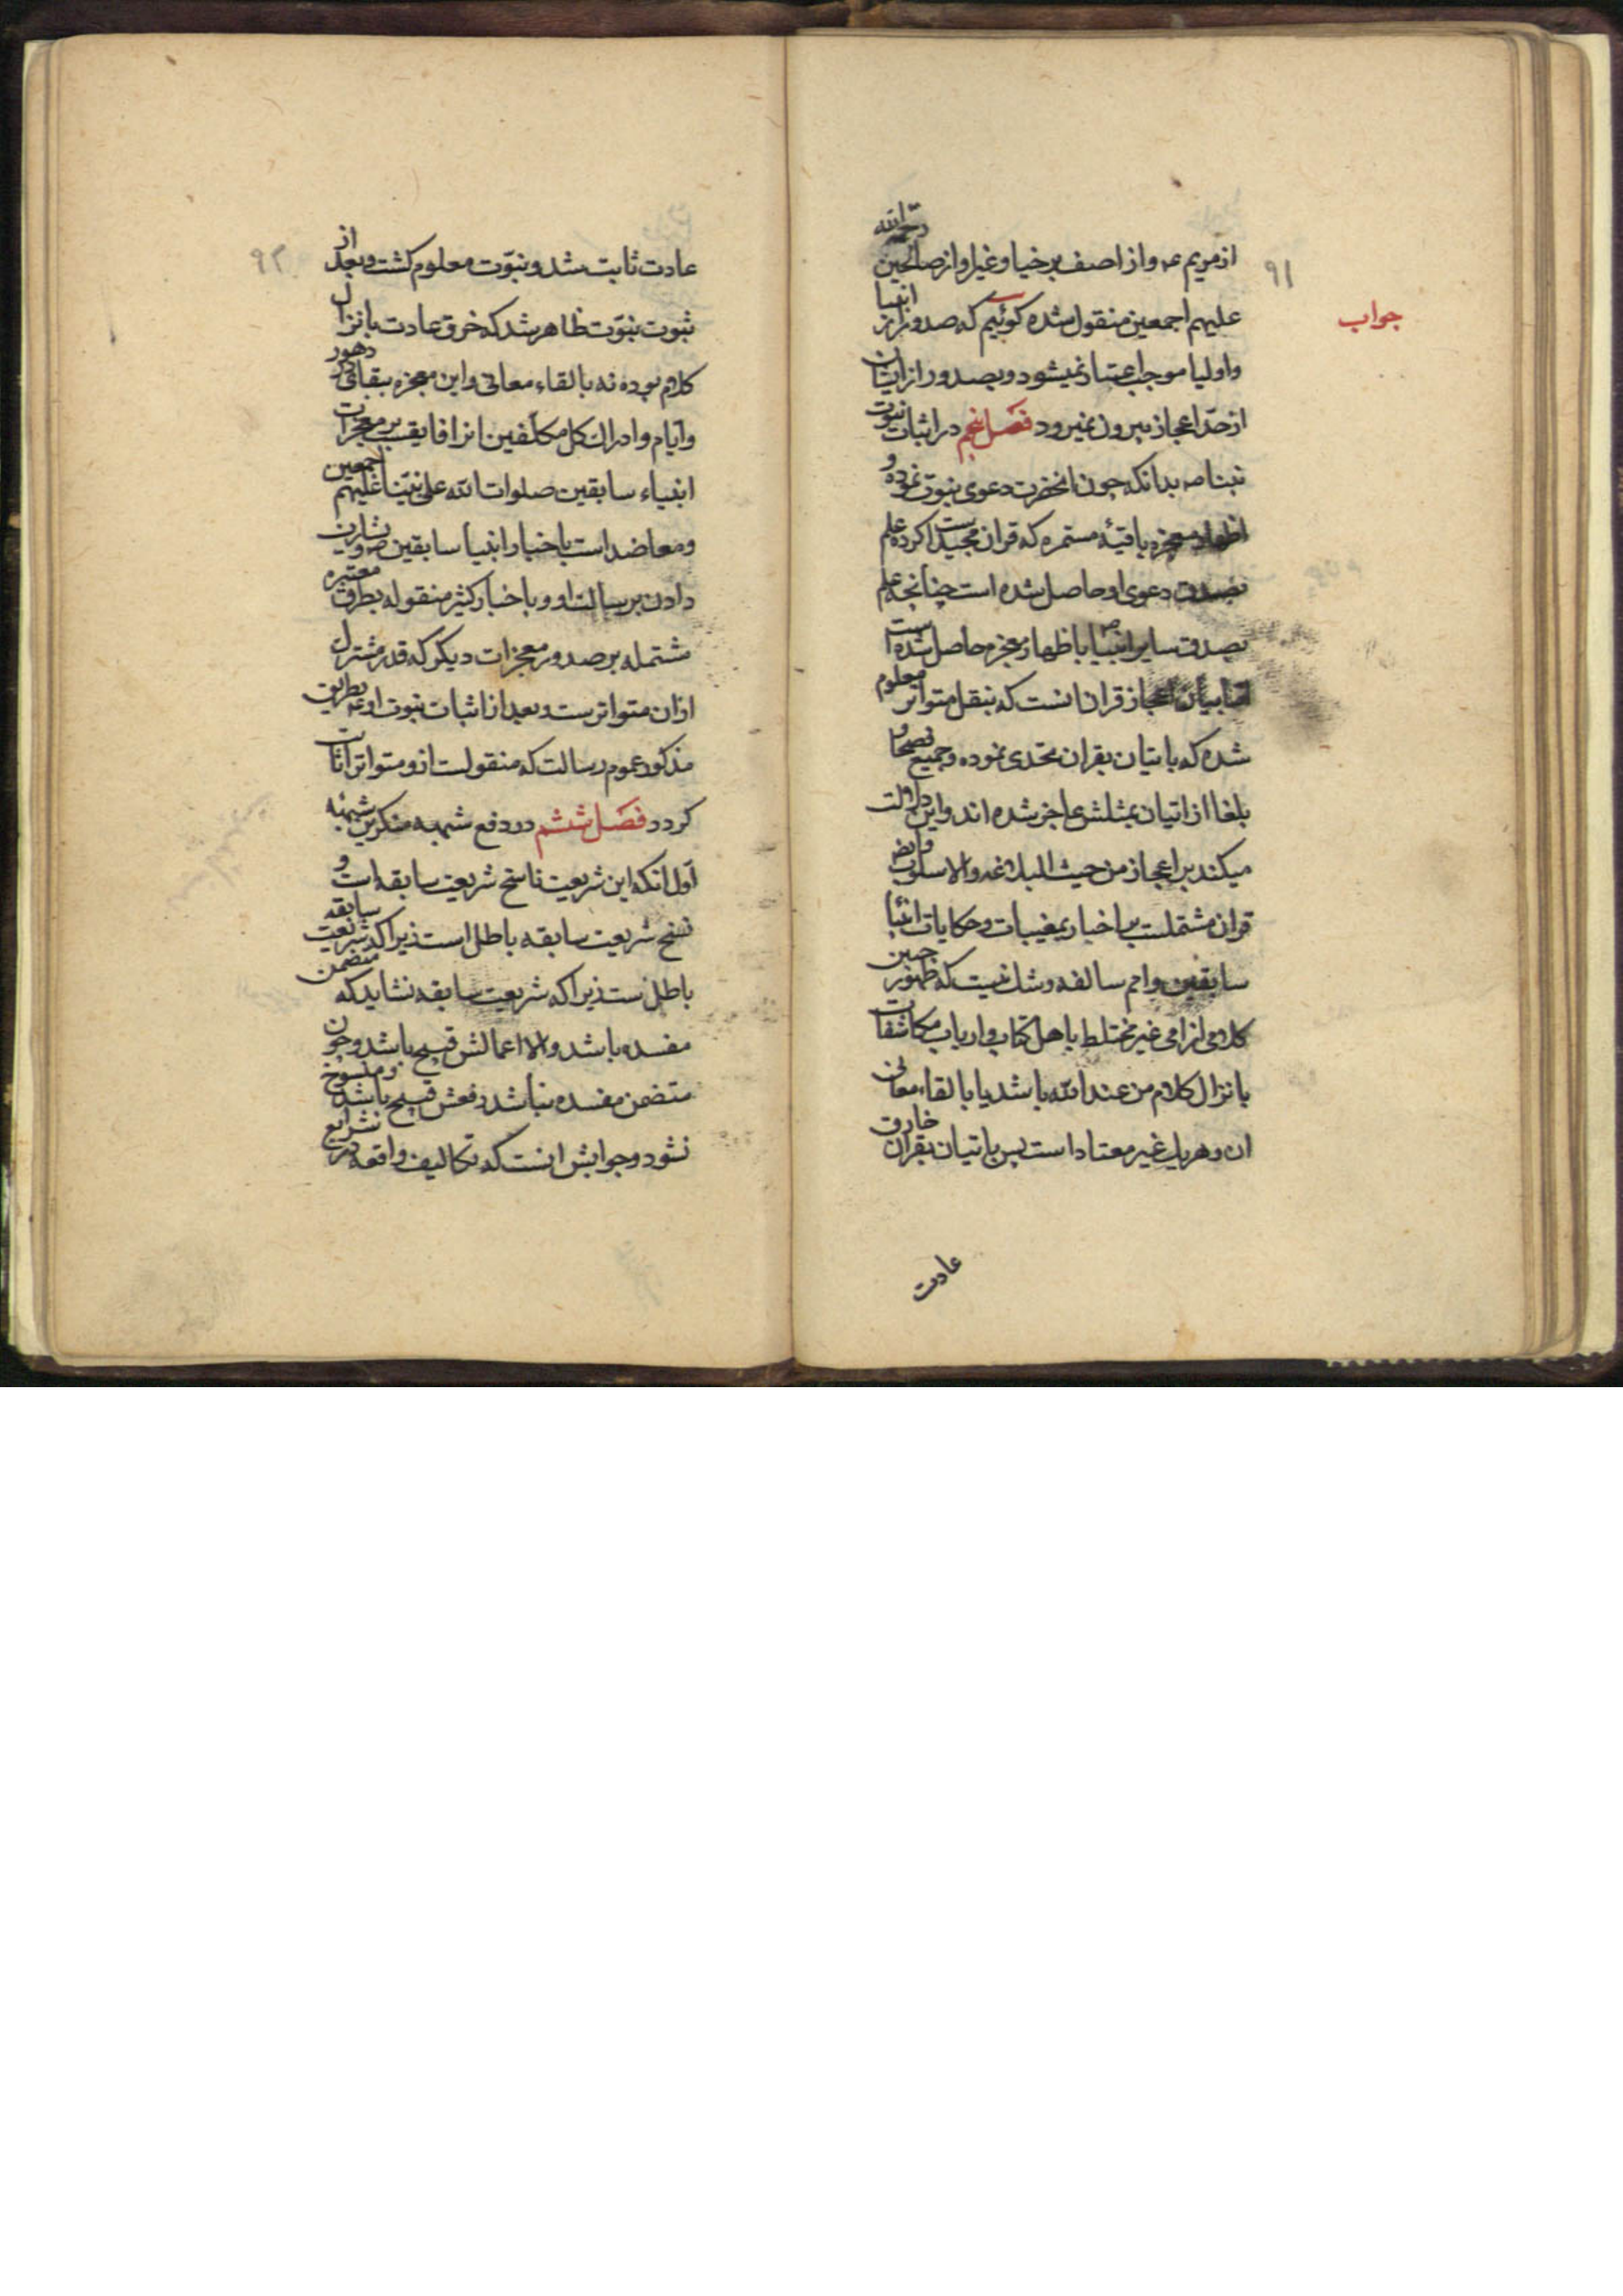 ۹۱
جواب
از مریم عه و از اصف برخیا و غیر او از صالحین رحمة الله
علیهم اجمعین منقول شده کوئیم که صدور از انبیا
و اولیا موجب اعتیاد نمیشود و بصدور از ایشان
از حد اعجاز بیرون نمیرود فصل پنجم در اثبات نبوت
نبینا صه بدانکه چون انحضرت دعوی نبوت نموده و
اظهار معجزه باقیهٔ مستمره که قران مجید است کرده علم
بصدق دعوی او حاصل شده است چنانچه علم
بصدق سایر انبیا باظهار معجزه حاصل شده است
اما بیان اعجاز قران انست که بنقل متواتر معلوم
شده که باتیان بقران تحدی نموده و جمیع فصحا و
بلغا از اتیان بمثلش عاجز شده اند و این دلالت
میکند بر اعجاز من حیث البلاغه والاسلوب و ایض
قران مشتملست بر اخبار بمغیبات و حکایات انبیا
سابقین و امم سالفه و شک نیست که ظهور چنین
کلامی از امی غیر مختلط باهل کتاب و ارباب مکاشفات
بانزال کلام من عند الله باشد یا بالقاء معانی
ان و هر یک غیر معتاد است پس باتیان بقران خارق
عادت
۹۲
عادت ثابت شد و نبوّت معلوم کشت و بعد از
ثبوت نبوّت ظاهر شد که خرق عادت بانزال
کلام بوده نه بالقاء معانی و این معجزه ببقای دهور
و ایام و ادراک کل مکلّفین انرا فایقست بر معجزات
انبیاء سابقین صلوات الله علی نبیّنا و علیهم اجمعین
و معاضد است باخبار انبیا سابقین و بشارت
دادن برسالت او و باخبار کثیر منقوله بطرق معتبره
مشتمله بر صدور معجزات دیکر که قدر مشترک
ازان متواترست و بعد از اثبات نبوت او عه بطریق
مذکور عموم رسالت که منقولست از و متواتر اثبات
کردد فصل ششم در دفع شبهه منکرین شبهه
اوّل انکه این شریعت ناسخ شریعت سابقه است و
نسخ شریعت سابقه باطل است زیرا که شریعت سابقه
باطل نست زیرا که شریعت سابقه نشاید که متضمن
مفسده باشد والا اعمالش قبیح باشد و چون
متضمن مفسده نباشد رفعش قبیح باشد و منسوخ
نشود و جوابش انست که تکالیف واقعه در شرایع